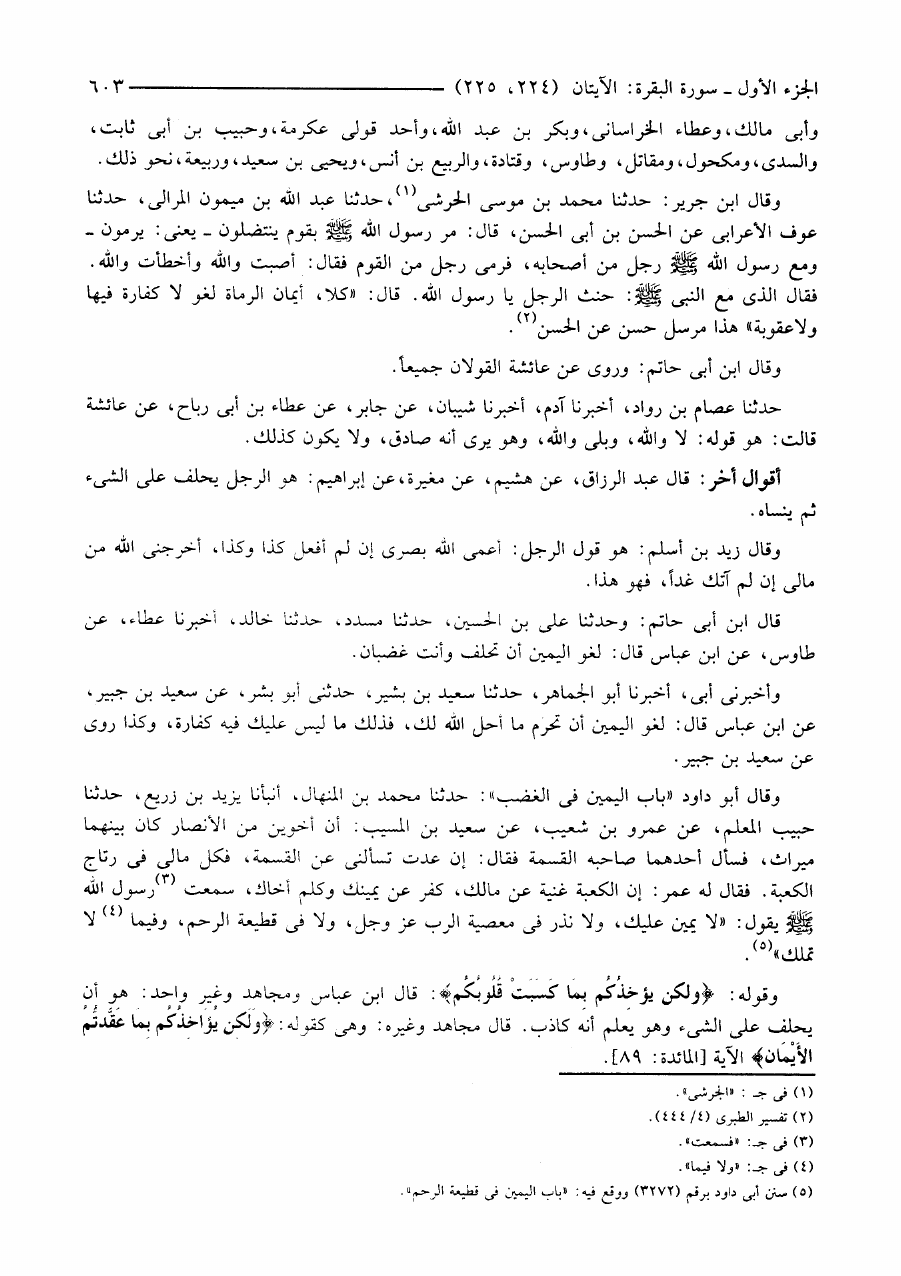 الجزء الأول ـ سورة البقرة: الآيتان (٢٢٤، ٢٢٥) ٦٠٣
وأبى مالك، وعطاء الخراسانى، وبكر بن عبد الله، وأحد قولى عكرمة، وحبيب بن أبى ثابت،
والسدى، ومكحول، ومقاتل، وطاوس، وقتادة، والربيع بن أنس، ويحيى بن سعيد، وربيعة، نحو ذلك.
وقال ابن جرير: حدثنا محمد بن موسى الحرشى(١)، حدثنا عبد الله بن ميمون المرالى، حدثنا
عوف الأعرابى عن الحسن بن أبى الحسن، قال: مر رسول الله ﷺ بقوم ينتضلون ـ يعنى: يرمون ـ
ومع رسول الله ﷺ رجل من أصحابه، فرمى رجل من القوم فقال: أصبت والله وأخطأت والله.
فقال الذى مع النبى ﷺ: حنث الرجل يا رسول الله. قال: «كلا، أيمان الرماة لغو لا كفارة فيها
ولاعقوبة» هذا مرسل حسن عن الحسن(٢).
وقال ابن أبى حاتم: وروى عن عائشة القولان جميعاً.
حدثنا عصام بن رواد، أخبرنا آدم، أخبرنا شيبان، عن جابر، عن عطاء بن أبى رباح، عن عائشة
قالت: هو قوله: لا والله، وبلى والله، وهو يرى أنه صادق، ولا يكون كذلك.
أقوال أخر: قال عبد الرزاق، عن هشيم، عن مغيرة، عن إبراهيم: هو الرجل يحلف على الشىء
ثم ينساه.
وقال زيد بن أسلم: هو قول الرجل: أعمى الله بصرى إن لم أفعل كذا وكذا، أخرجنى الله من
مالى إن لم آتك غداً، فهو هذا.
قال ابن أبى حاتم: وحدثنا على بن الحسين، حدثنا مسدد، حدثنا خالد، أخبرنا عطاء، عن
طاوس، عن ابن عباس قال: لغو اليمين أن تحلف وأنت غضبان.
وأخبرنى أبى، أخبرنا أبو الجماهر، حدثنا سعيد بن بشير، حدثنى أبو بشر، عن سعيد بن جبير،
عن ابن عباس قال: لغو اليمين أن تحرم ما أحل الله لك، فذلك ما ليس عليك فيه كفارة، وكذا روى
عن سعيد بن جبير.
وقال أبو داود «باب اليمين فى الغضب»: حدثنا محمد بن المنهال، أنبأنا يزيد بن زريع، حدثنا
حبيب المعلم، عن عمرو بن شعيب، عن سعيد بن المسيب: أن أخوين من الأنصار كان بينهما
ميراث، فسأل أحدهما صاحبه القسمة فقال: إن عدت تسألنى عن القسمة، فكل مالى فى رتاج
الكعبة. فقال له عمر: إن الكعبة غنية عن مالك، كفر عن يمينك وكلم أخاك، سمعت(٣) رسول الله
ﷺ يقول: «لا يمين عليك، ولا نذر فى معصية الرب عز وجل، ولا فى قطيعة الرحم، وفيما (٤) لا
تملك»(٥).
وقوله: ﴿ولكن يؤخذُكُم بِمَا كَسَبَتْ قُلُوبُكُم﴾: قال ابن عباس ومجاهد وغير واحد: هو أن
يحلف على الشىء وهو يعلم أنه كاذب. قال مجاهد وغيره: وهى كقوله: ﴿وَلَكِن يُؤَاخِذُكُم بِمَا عَقَّدتُّمُ
الأَيْمَانَ﴾ الآية [المائدة: ٨٩].
(١) فى جـ : «الجرشى».
(٢) تفسير الطبرى (٤/ ٤٤٤).
(٣) فى جـ: «فسمعت».
(٤) فى جـ: «ولا فيما».
(٥) سنن أبى داود برقم (٣٢٧٢) ووقع فيه: «باب اليمين فى قطيعة الرحم».